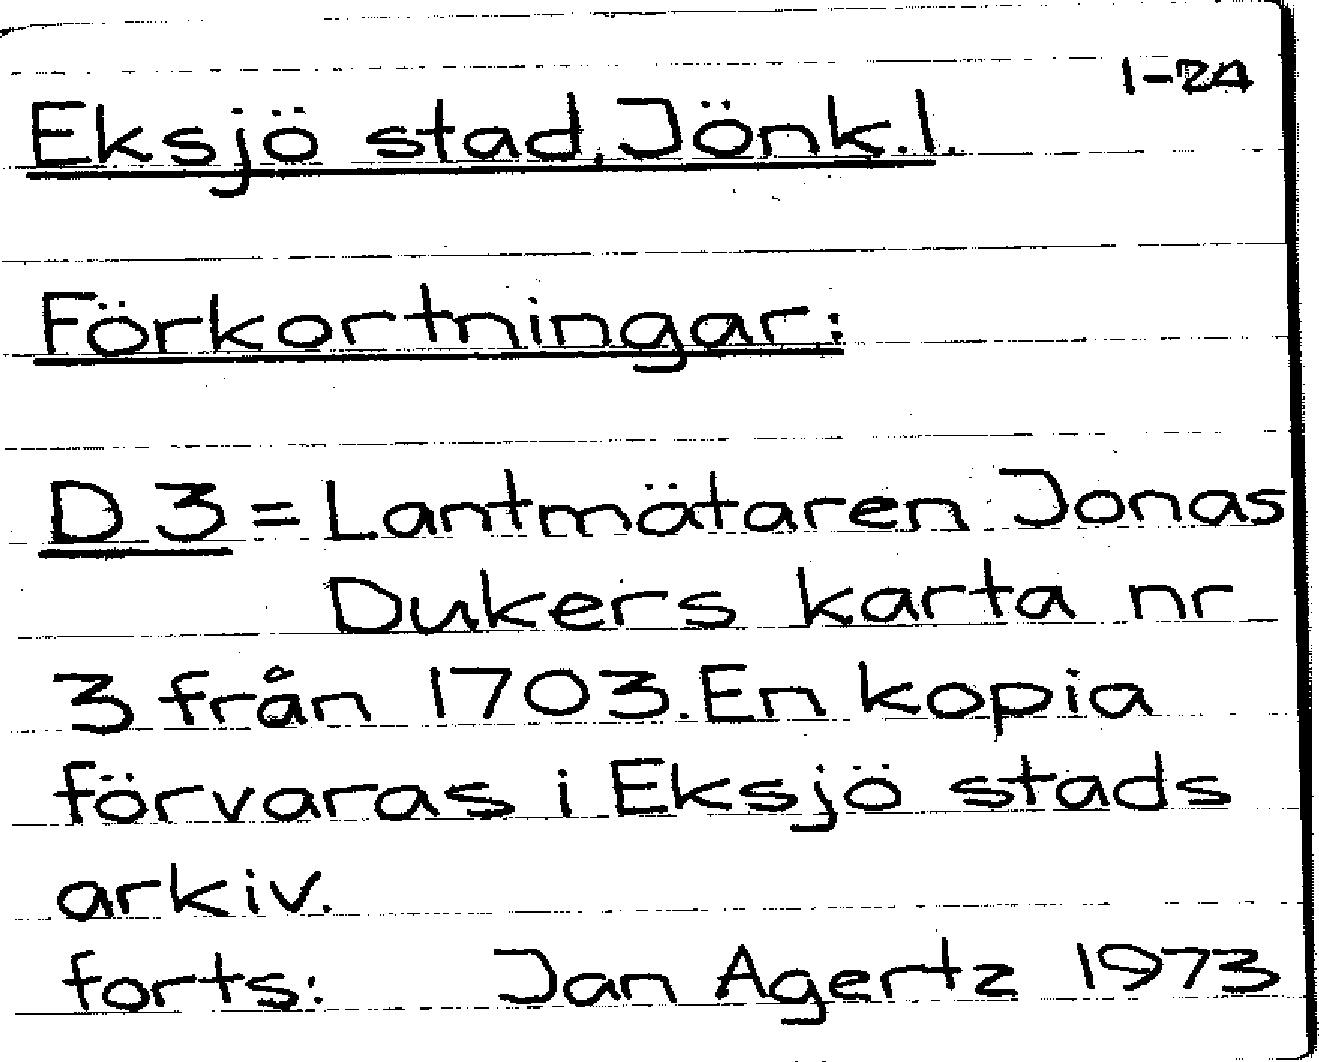 1-24
Eksjö stad, Jönk.l.
Förkortningar:
D 3 = Lantmätaren Jonas
Dukers karta nr
3 från 1703. En kopia
förvaras i Eksjö stads
arkiv.
forts: Jan Agertz 1973